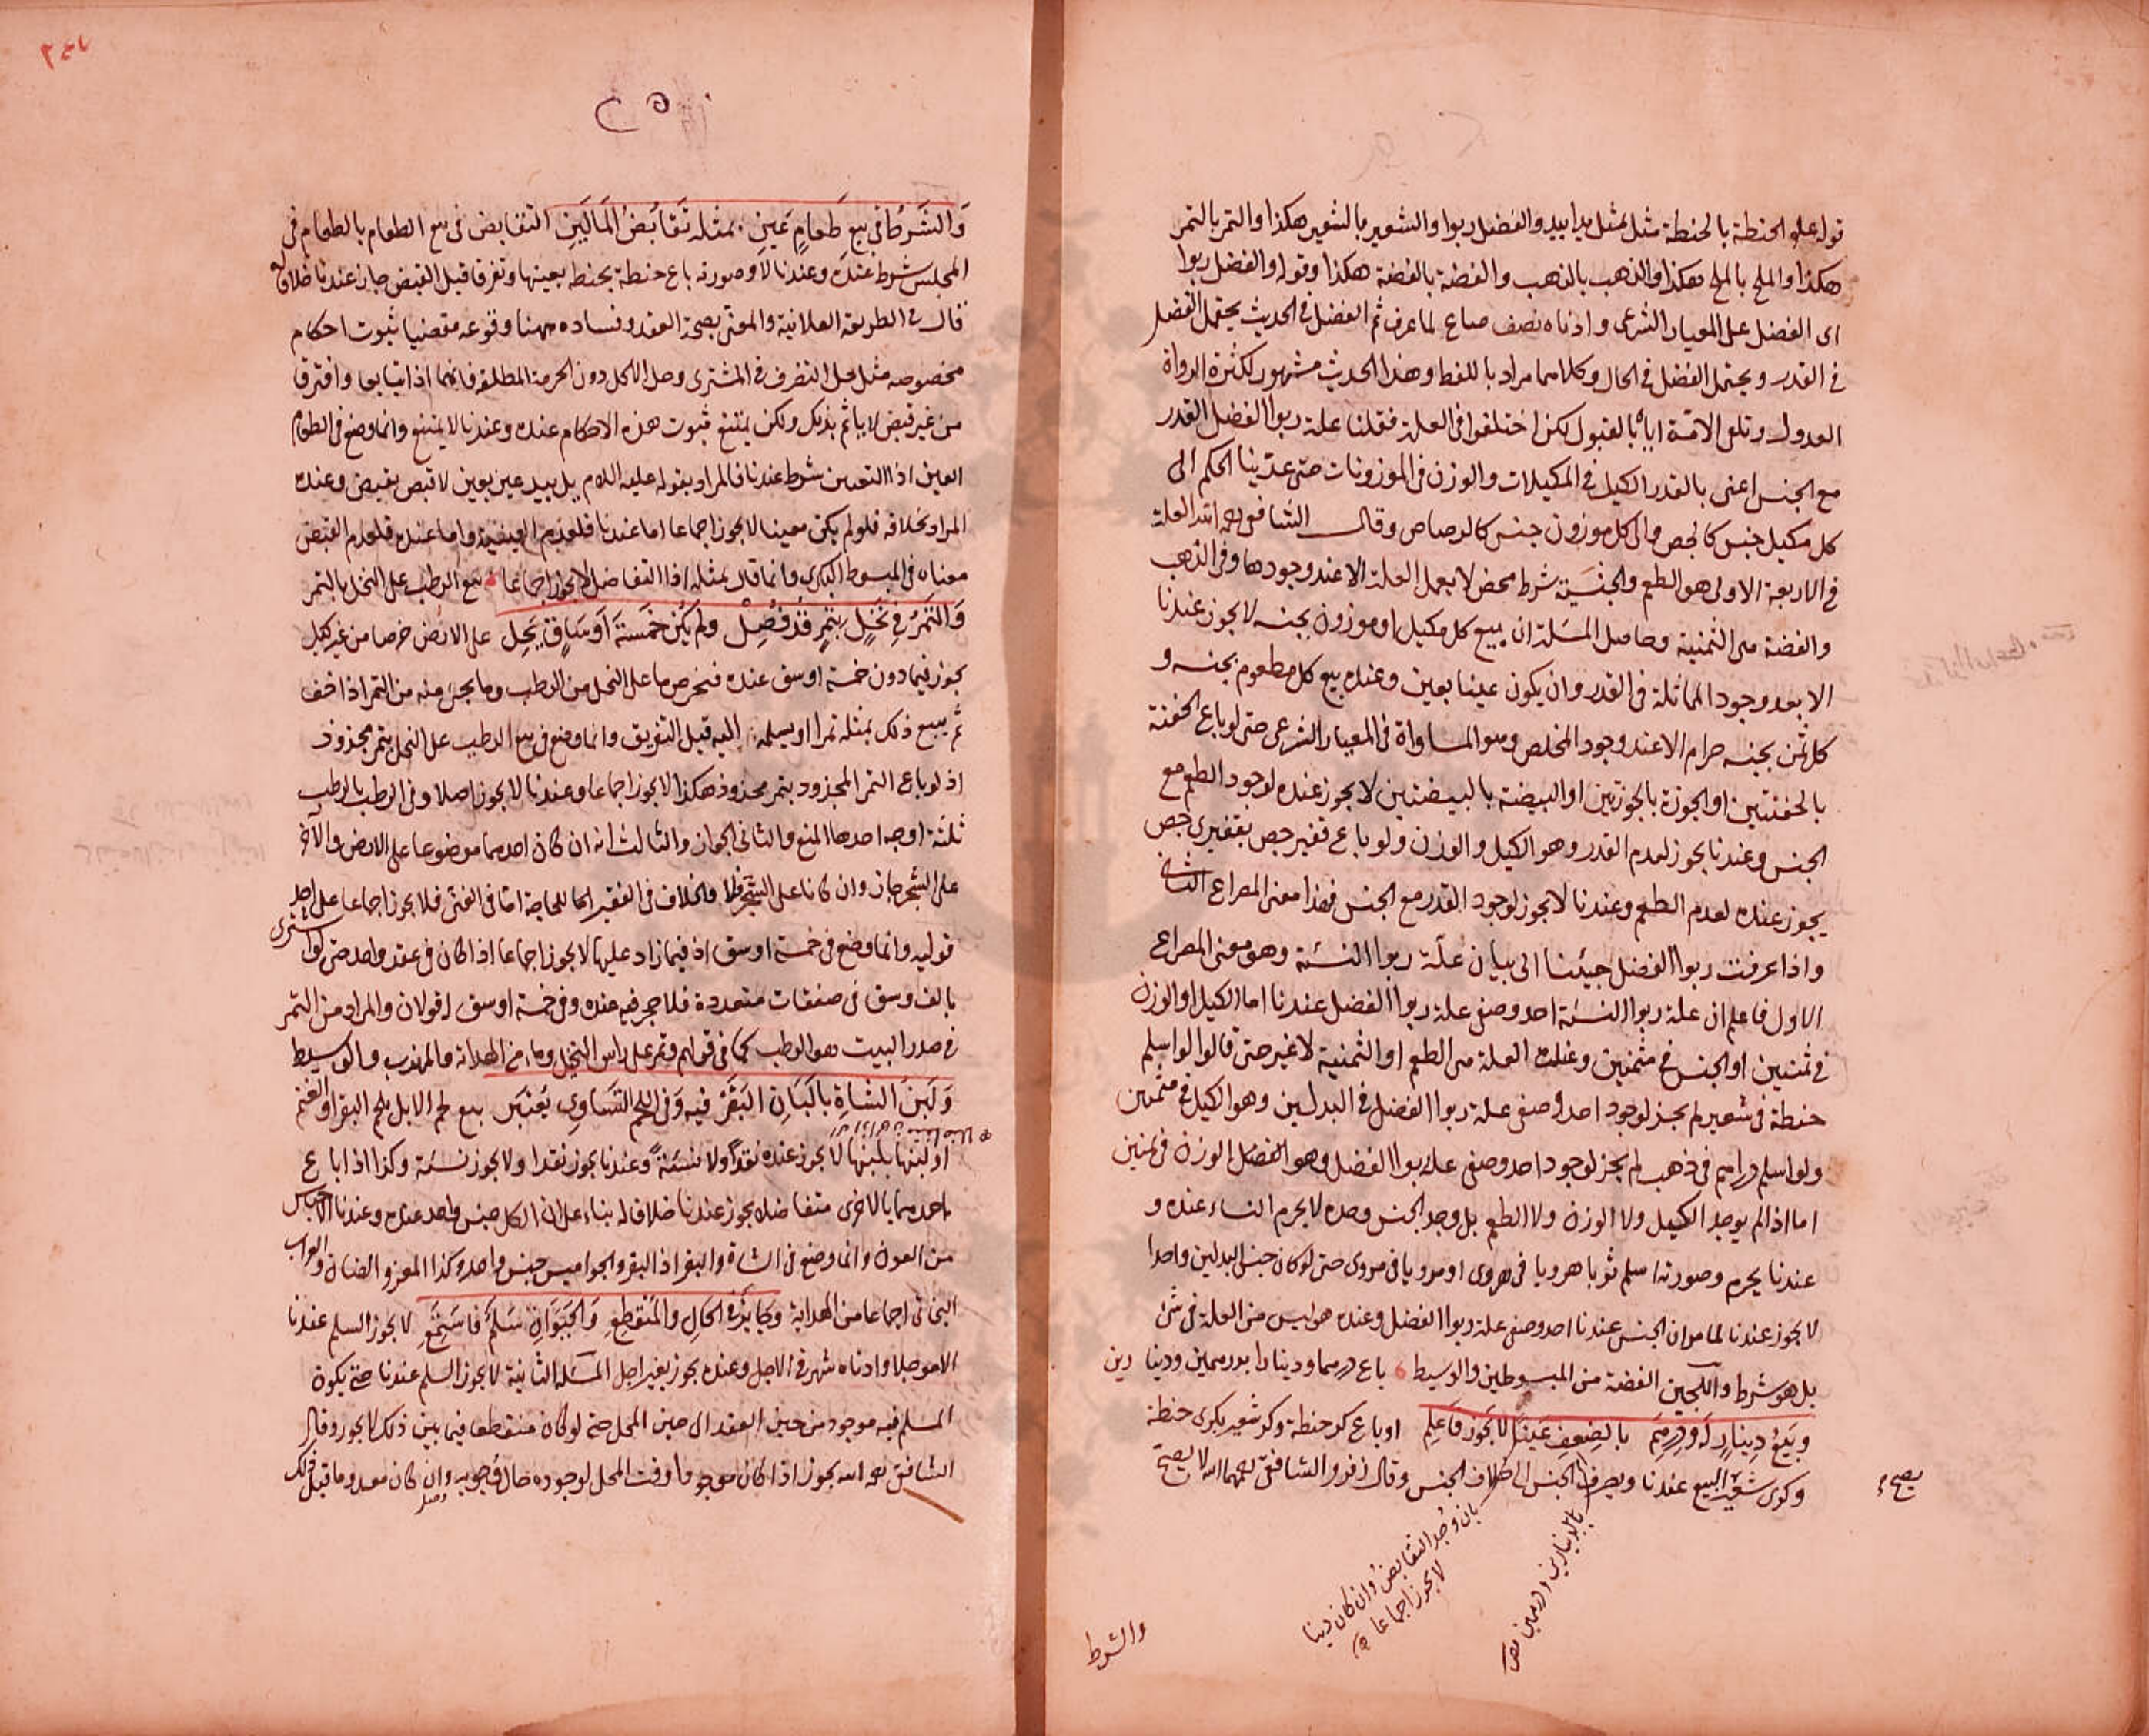 قوله عليه الحنطة بالحنطة مثل بمثل يدا بيد والفضل ربوا والشعير بالشعير هكذا والتمر بالتمر
هكذا والملح بالملح هكذا والذهب بالذهب والفضة بالفضة هكذا وقوله والفضل ربوا
اى الفضل على المعيار الشرعى وادناه نصف صاع لما عرف ثم الفضل فى الحديث يحتمل الفضل
فى القدر ويحتمل الفضل فى الحال وكلاهما مراد باللفظ وهذا الحديث مشهور لكثرة الرواة
العدول وتلقى الامة اياه بالقبول لكن اختلفوا فى العلة فقلنا علة ربوا الفضل القدر
مع الجنس اعنى بالقدر الكيل فى المكيلات والوزن فى الموزونات حتى عدّينا الحكم الى
كل مكيل جنس كالجص والى كل موزون جنس كالرصاص وقال الشافعى رحمه الله العلة
فى الاربعة الاولى هو الطعم والجنسية شرط محض لا يعمل العلة الا عند وجودها وفى الذهب
والفضة هى الثمنية وحاصل المسئلة ان بيع كل مكيل او موزون بجنسه لا يجوز عندنا
الا بعد وجود المماثلة فى القدر وان يكون عينا بعين وعنده بيع كل مطعوم بجنسه و
كل ثمن بجنسه حرام الا عند وجود المخلص وهو المساواة فى المعيار الشرعى حتى لو باع الحفنة
بالحفنتين او الجوزة بالجوزتين او البيضة بالبيضتين لا يجوز عنده لوجود الطعم مع
الجنس وعندنا يجوز لعدم القدر وهو الكيل والوزن ولو باع قفيز جص بقفيزى جص
يجوز عنده لعدم الطعم وعندنا لا يجوز لوجود القدر مع الجنس فهذا معنى المصراع الثانى
واذا عرفت ربوا الفضل جيئنا الى بيان علة ربوا النسئة وهو معنى المصراع
الاول فاعلم ان علة ربوا النسئة احد وصفى علة ربوا الفضل عندنا اما الكيل او الوزن
فى ثمنين او الجنس فى مثمنين وعنده العلة هى الطعم او الثمنية لا غير حتى قالوا لو اسلم
حنطة فى شعير لم يجز لوجود احد وصفى علة ربوا الفضل فى البدلين وهو الكيل فى مثمنين
ولو اسلم دراهم فى ذهب لم يجز لوجود احد وصفى علة ربوا الفضل وهو الوزن فى ثمنين
اما اذا لم يوجد الكيل ولا الوزن ولا الطعم بل وجد الجنس وحده لا يحرم النساء عنده و
عندنا يحرم وصورته اسلم ثوبا هرويا فى هروى او مرويا فى مروى حتى لو كان جنس البدلين واحدا
لا يجوز عندنا لما مر ان الجنس عندنا احد وصفى علة ربوا الفضل وعنده هو ليس من العلة فى شئ
بل هو شرط واللجين الفضة من المبسوطين والوسيط باع درهما ودينارا بدرهمين ودينارين
وبيع دينار له ودرهم بالضعف عينا لا يجوز فاعلم او باع كر حنطة وكر شعير بكرى حنطة
وكرى شعير البيع عندنا ويصرف الجنس الى خلاف الجنس وقال زفر والشافعى رحمهما الله لا يصح
يصح
بان وجد التقابض وان كان دينا
لا يجوز اجماعا
بالدينارين ودرهمين
والشرط
وَالشَرطُ فى بيع طَعامٍ عَينٍ بمثله تَقَابُضُ المَالَيَن التقابض فى بيع الطعام بالطعام فى
المجلس شرط عنده وعندنا لا وصورته باع حنطة بحنطة بعينها وتفرقا قبل القبض جاز عندنا خلافا له
قال فى الطريقة العلائية والمعنى بصحة العقد وفساده ههنا وقوعه مقتضيا ثبوت احكام
مخصوصه مثل حل التصرف فى المشترى وحل الاكل دون الحرمة المطلقة فانهما اذا تبايعا وافترقا
من غير قبض لا ياثم بذلك ولكن يمتنع ثبوت هذه الاحكام عنده وعندنا لا يمتنع وانما وضع فى الطعام
العين اذا التعين شرط عندنا فالمراد بقوله عليه السلام يد بيد عين بعين لا قبض بقبض وعنده
المراد بخلافه فلو لم يكن معينا لا يجوز اجماعا اما عندنا فلعدم العينية واما عنده فلعدم القبض
معناه فى المبسوط البكرى وانما قال بمثله اذا التفاضل لا يجوز اجماعا بيع الرطب على النخل بالتمر
وَالتَمَرُ فى نَخلٍ بتمرٍ قَدْ فُصِلْ ولم يكن خَمسَةَ اَوسَاقٍ يَحِل على الارض خرصا من غير كيل
يجوز فيما دون خمسة اوسق عنده فيخرص ما على النخل من الرطب وما يجئ منه من التمر اذا خف
ثم يبيع ذلك بمثله تمرا ويسلمه اليه قبل التفريق وانما وضع فى بيع الرطب على النخل بتمر مجذوذ
اذ لو باع التمر المجذود بتمر مجذوذ هكذا لا يجوز اجماعا وعندنا لا يجوز اصلا وفى الرطب بالرطب
ثلثة اوجه احدها المنع والثانى الجواز والثالث انه ان كان احدهما موضوعا على الارض والآخر
على الشجر جاز وان كانا على الشجر فلا والخلاف فى الفقير اما للحاجة اما فى الغنى فلا يجوز اجماعا على احد
قوليه وانما وضع فى خمسة اوسق اذ فيما زاد عليها لا يجوز اجماعا اذا كان فى عقد واحد حتى لو اشترى
بالف وسق فى صفقات متعددة فلا حجر فيه عنده وفى خمسة اوسق له قولان والمراد من التمر
فى صدر البيت هو الرطب كما فى قولهم وتمر على راس النخل وماء من الهداية والمهذب والوسيط
وَلَبنُ الشاةِ بالَبَانِ البَقَرْ فيه وَفى اللحم التَسَاوى يُعْتَبَر بيع لحم الابل بلحم البقر او الغنم
او لبنها بلبنها لا يجوز عنده نقدا ولا نسئة وعندنا يجوز نقدا ولا يجوز نسئة وكذا اذا باع
احدهما بالاخرى متفاضلا يجوز عندنا خلافا له بناء على ان الكل جنس واحد عنده وعندنا اجناس
من العون وانما وضع فى الشاة والبقر اذ البقر والجواميس جنس واحد وكذا المعز والضان والعراب
البخاتى اجماعا من الهداية وجَائِزة الحَالِ والمُنقَطِعِ وَالحَيَوَانِ سَلَمٌ فَاستَمَعِ لا يجوز السلم عندنا
الا موجلا وادناه شهر فى الاجل وعنده يجوز بغير اجل المسئلة الثانية لا يجوز السلم عندنا حتى يكون
المسلم فيه موجود من حين العقد الى حين المحل حتى لو كان منقطعا فيما بين ذلك لا يجوز وقال
الشافعى رحمه الله يجوز اذا كان موجودا وقت المحل لوجوده حال وجوبه وان كان معدوما قبل ذلك